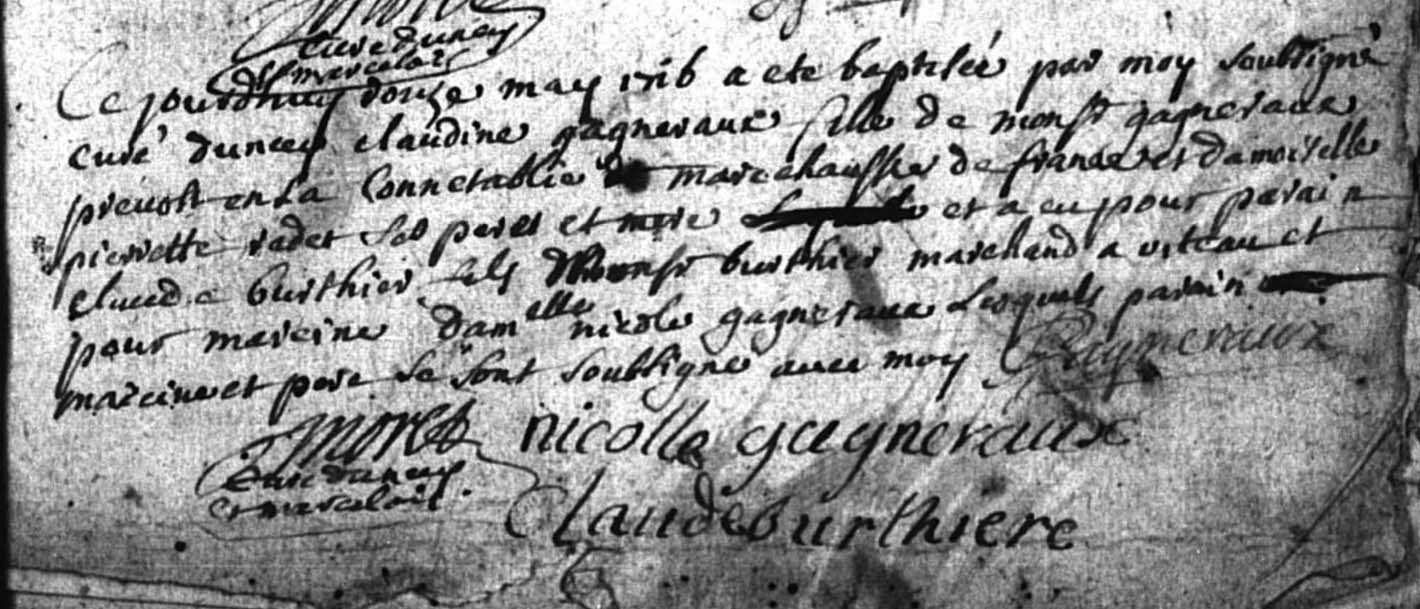 curé duncey
et marcelois
Ce jourdhuy douze may 1716 a ete baptisée par moy soubsigné
curé duncey claudine gagneraux fille de monsr gagneraux
prevost en la Connetablie marechaussée de france et damoiselle
pierrette radet ses peres et mere et a eu pour parain
Claude burthier fils monsr burthier marchand a viteau et
pour mareine damelle nicole gagneraux Lesquels parain
mareine et pere se sont soubsigné avec moy Gagneraux
nicolle gagneraux
curé duncey
et marcelois
Claude burthiere